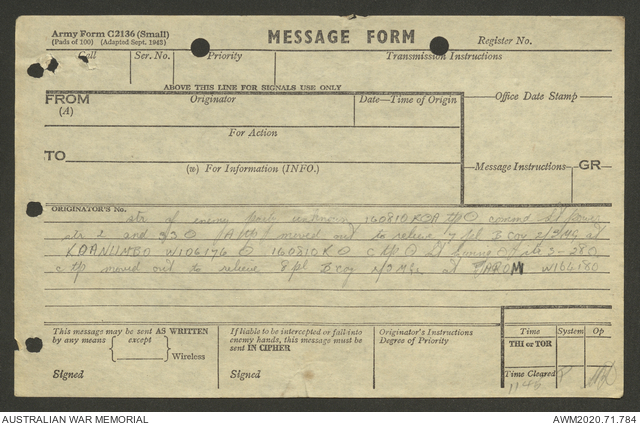 Army Form C2136 (Small)
(Pads of 100) (Adapted Sept. 1945)
MESSAGE FORM
Register No.
Call
Ser. No.
Priority
Transmission Instructions
ABOVE THIS LINE FOR SIGNALS USE ONLY
FROM
(A)
Originator
Date—Time of Origin
Office Date Stamp
For Action
TO
(w) For Information (INFO.)
Message Instructions
GR
ORIGINATOR'S No.
str of enemy unknown 160810K
str 2 and 33 moved out to relieve 7 pl B coy 2/3 MG at
KOANUMBO W106176 160810K C tp Lt str 3-28
C tp moved out to relieve 8 pl B coy 2/3 MG at W106180
This message may be sent AS WRITTEN
by any means except
Wireless
Signed
If liable to be intercepted or fall into
enemy hands, this message must be
sent IN CIPHER
Signed
Originator's Instructions
Degree of Priority
Time
System
Op
THI or TOR
Time Cleared
1145
AUSTRALIAN WAR MEMORIAL
AWM2020.71.784